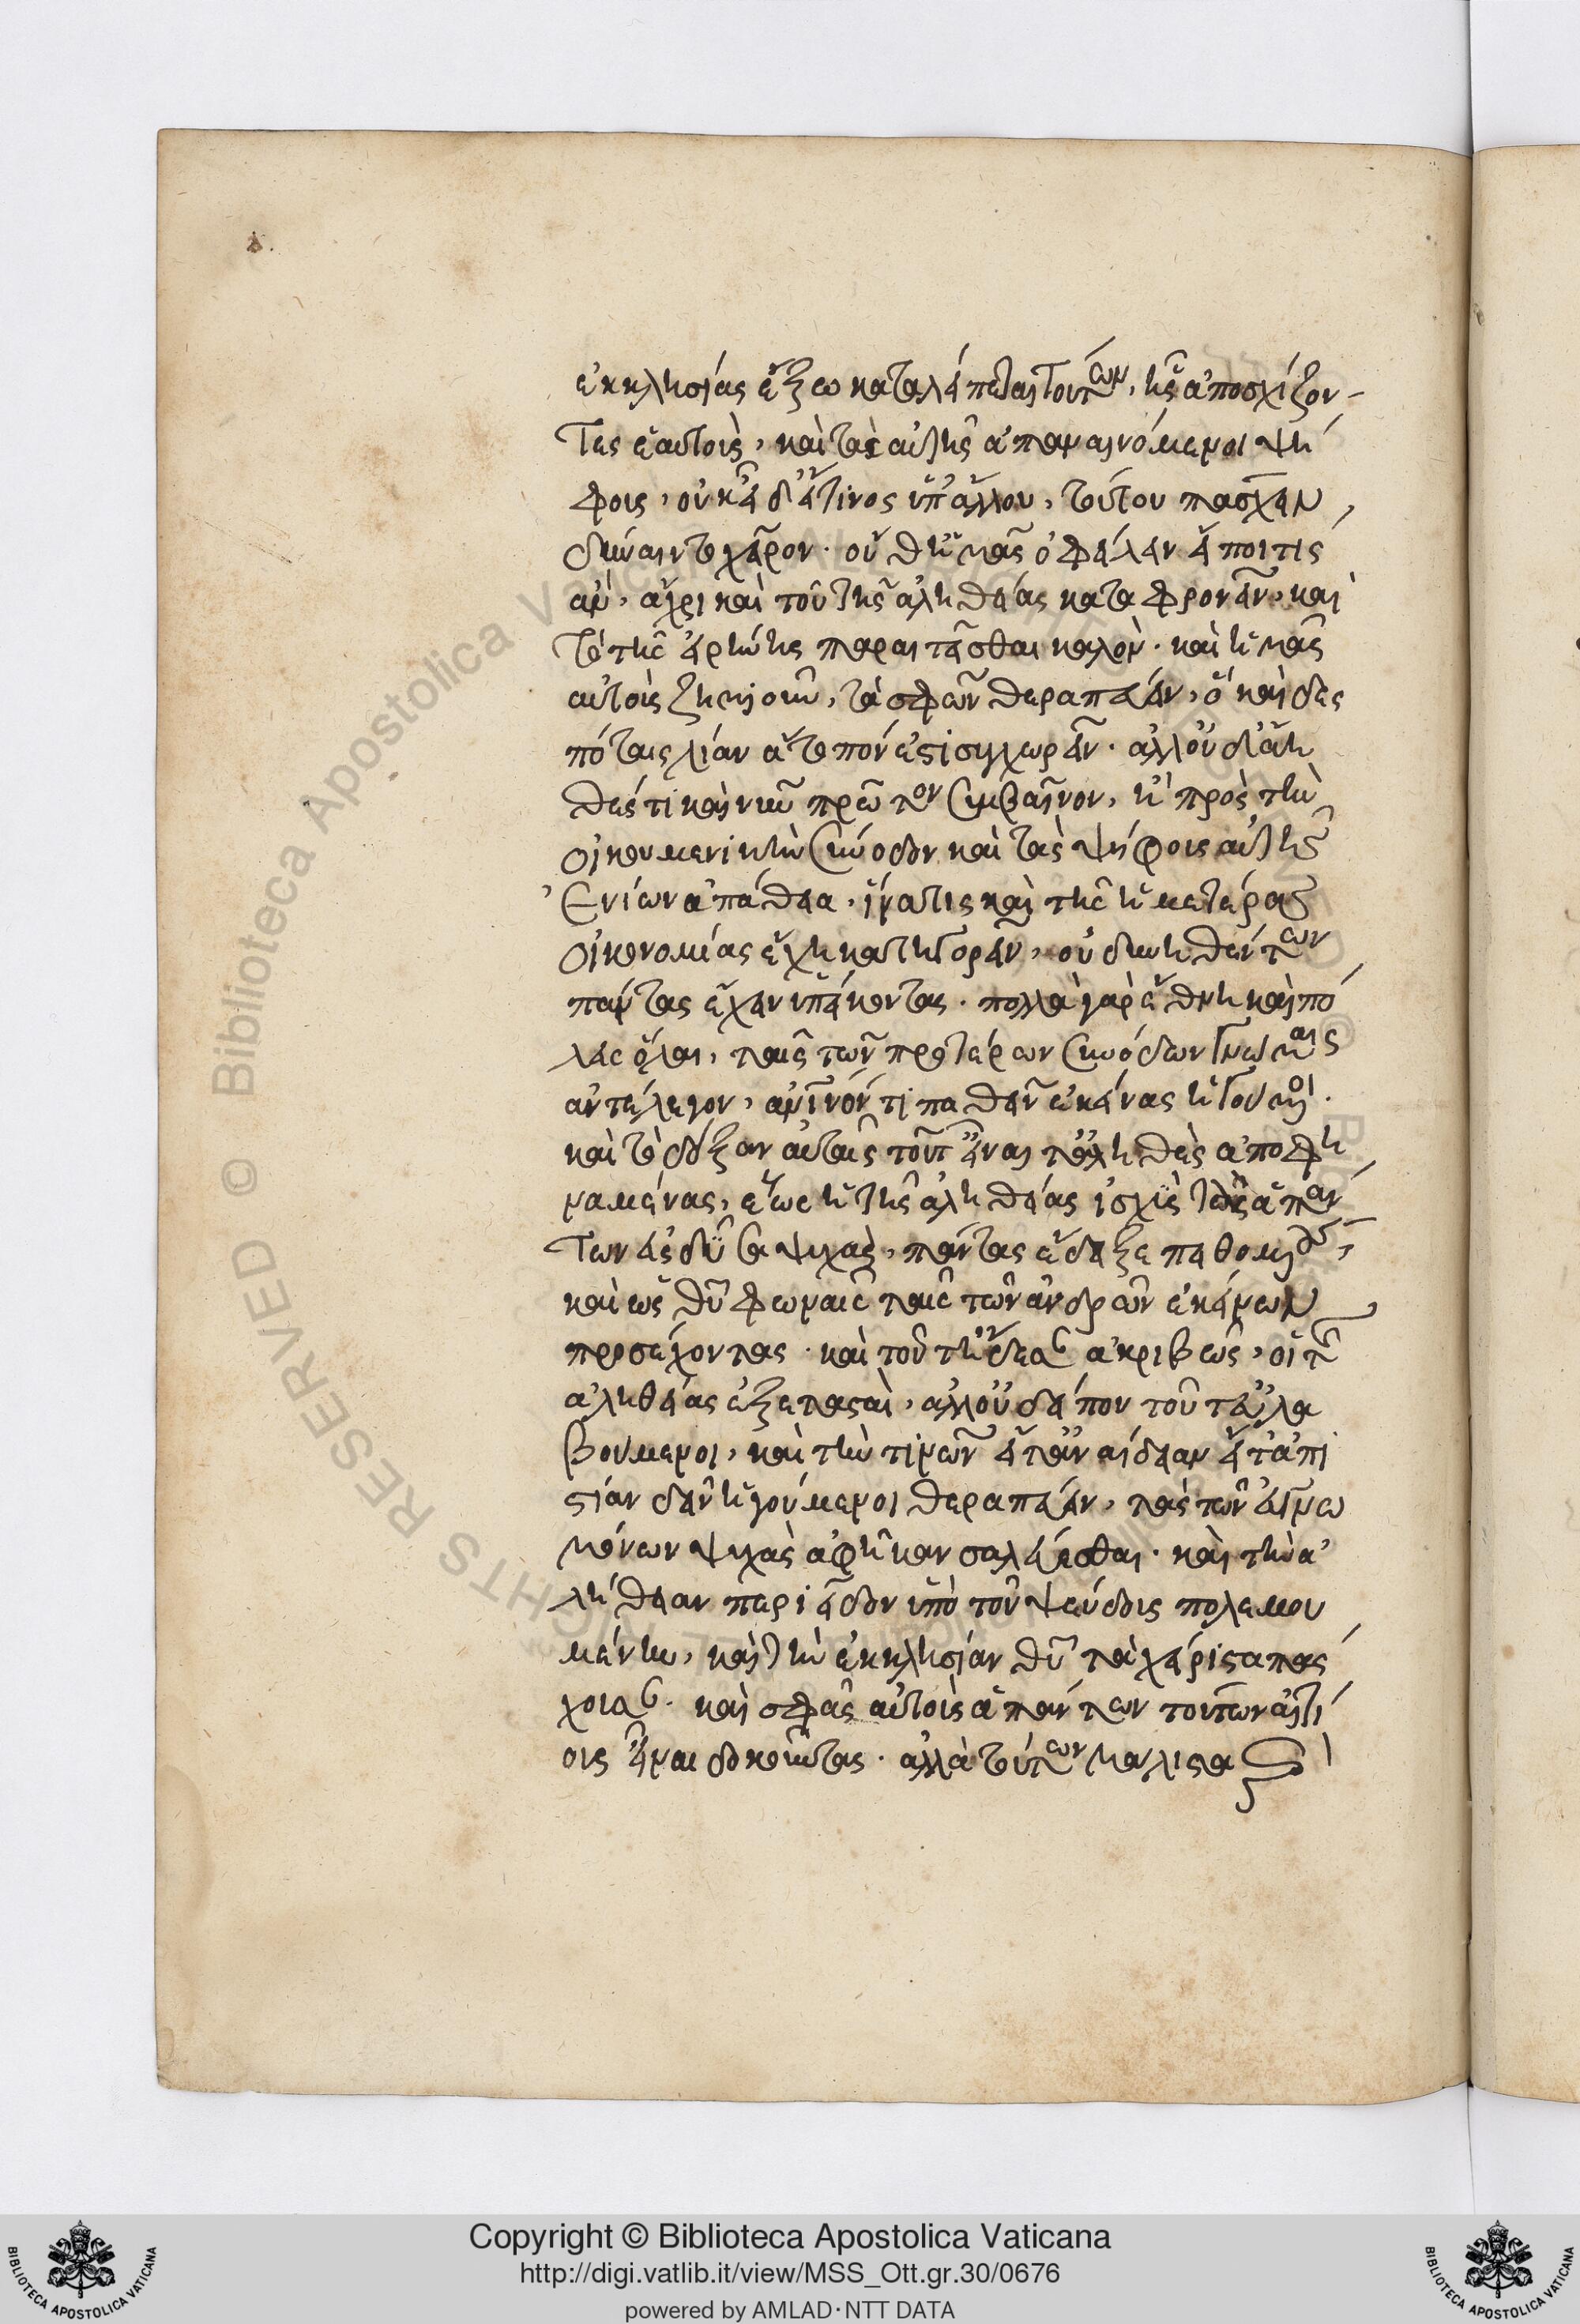 ἐκκλησίας ἔξω καταλείπεται τούτων, ἧς ἀποσχίζον-
τες ἑαυτοὺς, καὶ ταῖς αὐτῆς ἀπεμαινόμενοι ψή
φοις, οὐκ εἰ δεῖ τινος ὑπ' ἄλλου, τούτου πάσχειν,
δεινόν τε χεῖρον. οὐ δὴ ἡμᾶς ὀφείλειν εἴποι τις
ἂν, ἄχρι καὶ τοῦ τῆς ἀληθείας καταφρονεῖν, καὶ
τὸ τῆς εἰρήνης παραιτεῖσθαι καλόν. καὶ ἡμᾶς
αὐτοὺς ζημιοῦν, τὰ σφῶν θεραπεύειν, ὃ καὶ δες
πόταις λίαν ἄτοπόν ἐστι συγχωρεῖν. ἀλλ' οὐδ' ἄη
θές τι καὶ νῦν πρῶτον συμβαῖνον, ἡ πρὸς τὴν
οἰκουμενικὴν σύνοδον καὶ τὰς ψήφους αὐτῆς
ἐνίων ἀπείθεια, ἵνα τις καὶ τῆς ἡμετέρας
οἰκονομίας ἔχῃ κατηγορεῖν, οὐ δυνηθέντων
πάντας ἔχειν ὑπείκοντας. πολλὰ γὰρ ἔθνη καὶ πό
λεις ὅλαι, ταῖς τῶν προτέρων συνόδων γνώμαις
ἀντέλεγον, ἄμεινόν τι παθεῖν ἐκείνας ἡγούμενοι.
καὶ τὸ δόξαν αὐταῖς τοῦτ' εἶναι τἀληθὲς ἀποφη
ναμένας, ἕως ἡ τῆς ἀληθείας ἰσχὺς τὰς ἁπάν
των εἰσδῦσα ψυχὰς, πάντας ἔδειξε πειθομένους,
καὶ ὡς θεοῦ φωναῖς ταῖς τῶν ἀνδρῶν ἐκείνων
προσέχοντας. καὶ τοῦτ' ᾔδεσαν ἀκριβῶς, οἱ τῆς
ἀληθείας ἐξετασταὶ, ἀλλ' οὐ δήπου τοῦτ' εὐλα
βούμενοι, καὶ τήν τινων εἴτ' ἀναίδειαν εἴτ' ἀπι
στίαν δεῖν ἡγούμενοι θεραπεύειν, τὰς τῶν εὐγνω
μόνων ψυχὰς ἀφῆκαν σαλεύεσθαι. καὶ τὴν ἀ
λήθειαν περιεῖδον ὑπὸ τοῦ ψεύδους πολεμου
μένην, καὶ τὴν ἐκκλησίαν θεοῦ τὰ χείριστα πάς
χουσαν. καὶ σφᾶς αὐτοὺς ἁπάντων τούτων αἰτί
ους εἶναι δοκοῦντας. ἀλλὰ τούτων μάλιστα